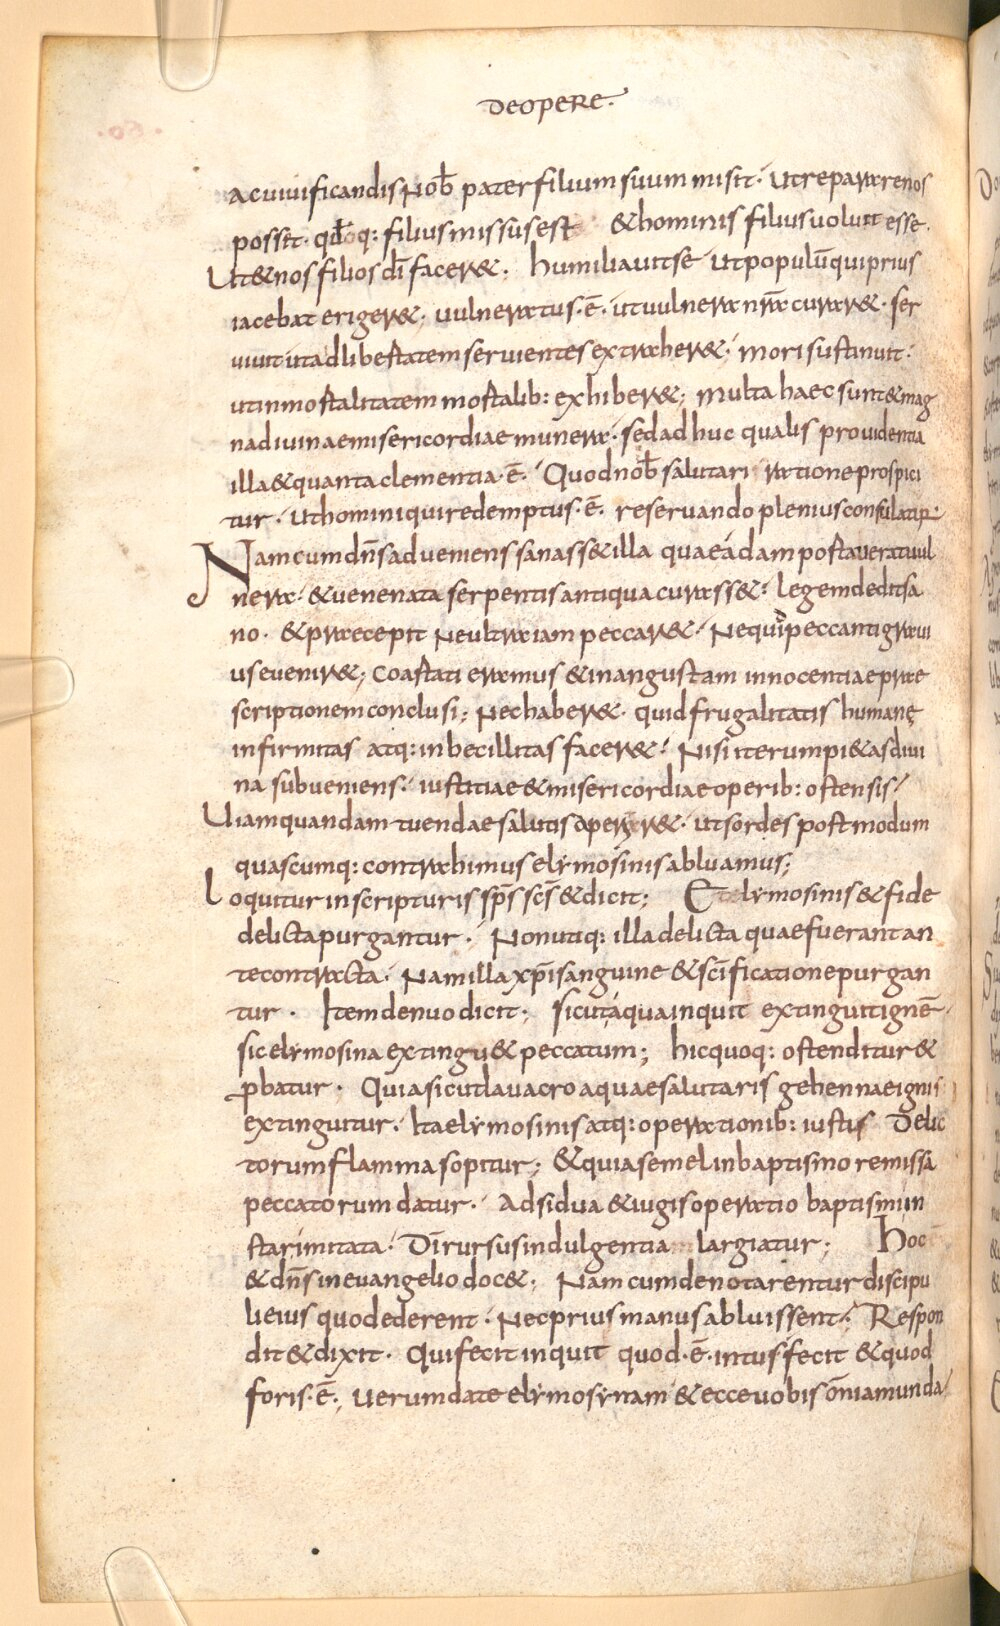 DEOPERE.
ac uiuificandis nob̄ pater filium suum misit. Ut reparare nos
possit. qd̄q: filius missus est & hominis filius uoluit esse.
Ut & nos filios dī facer&; humiliauit se ut populū qui prius
iacebat eriger&; uulneratus. ē. ut uulnera nr̄a curar&. ser
uiuit ut ad libertatem seruientes extraher&; mori sustinuit.
ut inmortalitatem mortalib: exhiber&; multa haec sunt & mag
na diuinae misericordiae munera. sed ad huc qualis prouidentia
illa & quanta clementia. ē. Quod nob̄ salutari ratione prospici
tur. Ut homini qui redemptus. ē. reseruando plenius consulatur.
Nam cum dn̄s adueniens sanass& illa quae adam portauerat uul
nera. & uenenata serpentis antiqua curass&. legem dedit sa
no. & praecepit ne ultra iam peccar&. Ne quid peccanti graui
us euenir&; coartati eramus & in angustam innocentiae prae
scriptionem conclusi; Nec haber&. quid fragilitatis humanę
infirmitas atq: inbecillitas facer&. Nisi iterum pi&as diui
na subueniens. iustitiae & misericordiae operib: ostensis.
Uiam quandam tuendae salutis aperir&. ut sordes postmodum
quascumq: contrahimus elymosinis abluamus;
Loquitur in scripturis sp̄s sc̄s & dicit; Elymosinis & fide
delicta purgantur. Non utiq: illa delicta quae fuerant an
te contracta. Nam illa xp̄i sanguine & sc̄ificatione purgan
tur. Item denuo dicit; sicut aqua inquit extinguit ignē.
sic elymosina extingu& peccatum; hic quoq: ostenditur &
ꝓbatur. Quia sicut lauacro aquae salutaris gehennae ignis
extinguitur. Ita elymosinis atq: operationib: iustis Delic
torum flamma sopitur; & quia semel in baptismo remissa
peccatorum datur. Adsidua & iugis operatio baptismi in
star imitata. Dī rursus indulgentia largiatur; Hoc
& dn̄s in euangelio doc&; Nam cum denotarentur discipu
li eius quod ederent. Nec prius manus abluissent. Respon
dit & dixit. Qui fecit inquit quod. ē. intus fecit & quod
foris. ē; Uerum date elymosynam & ecce uobis om̄ia munda